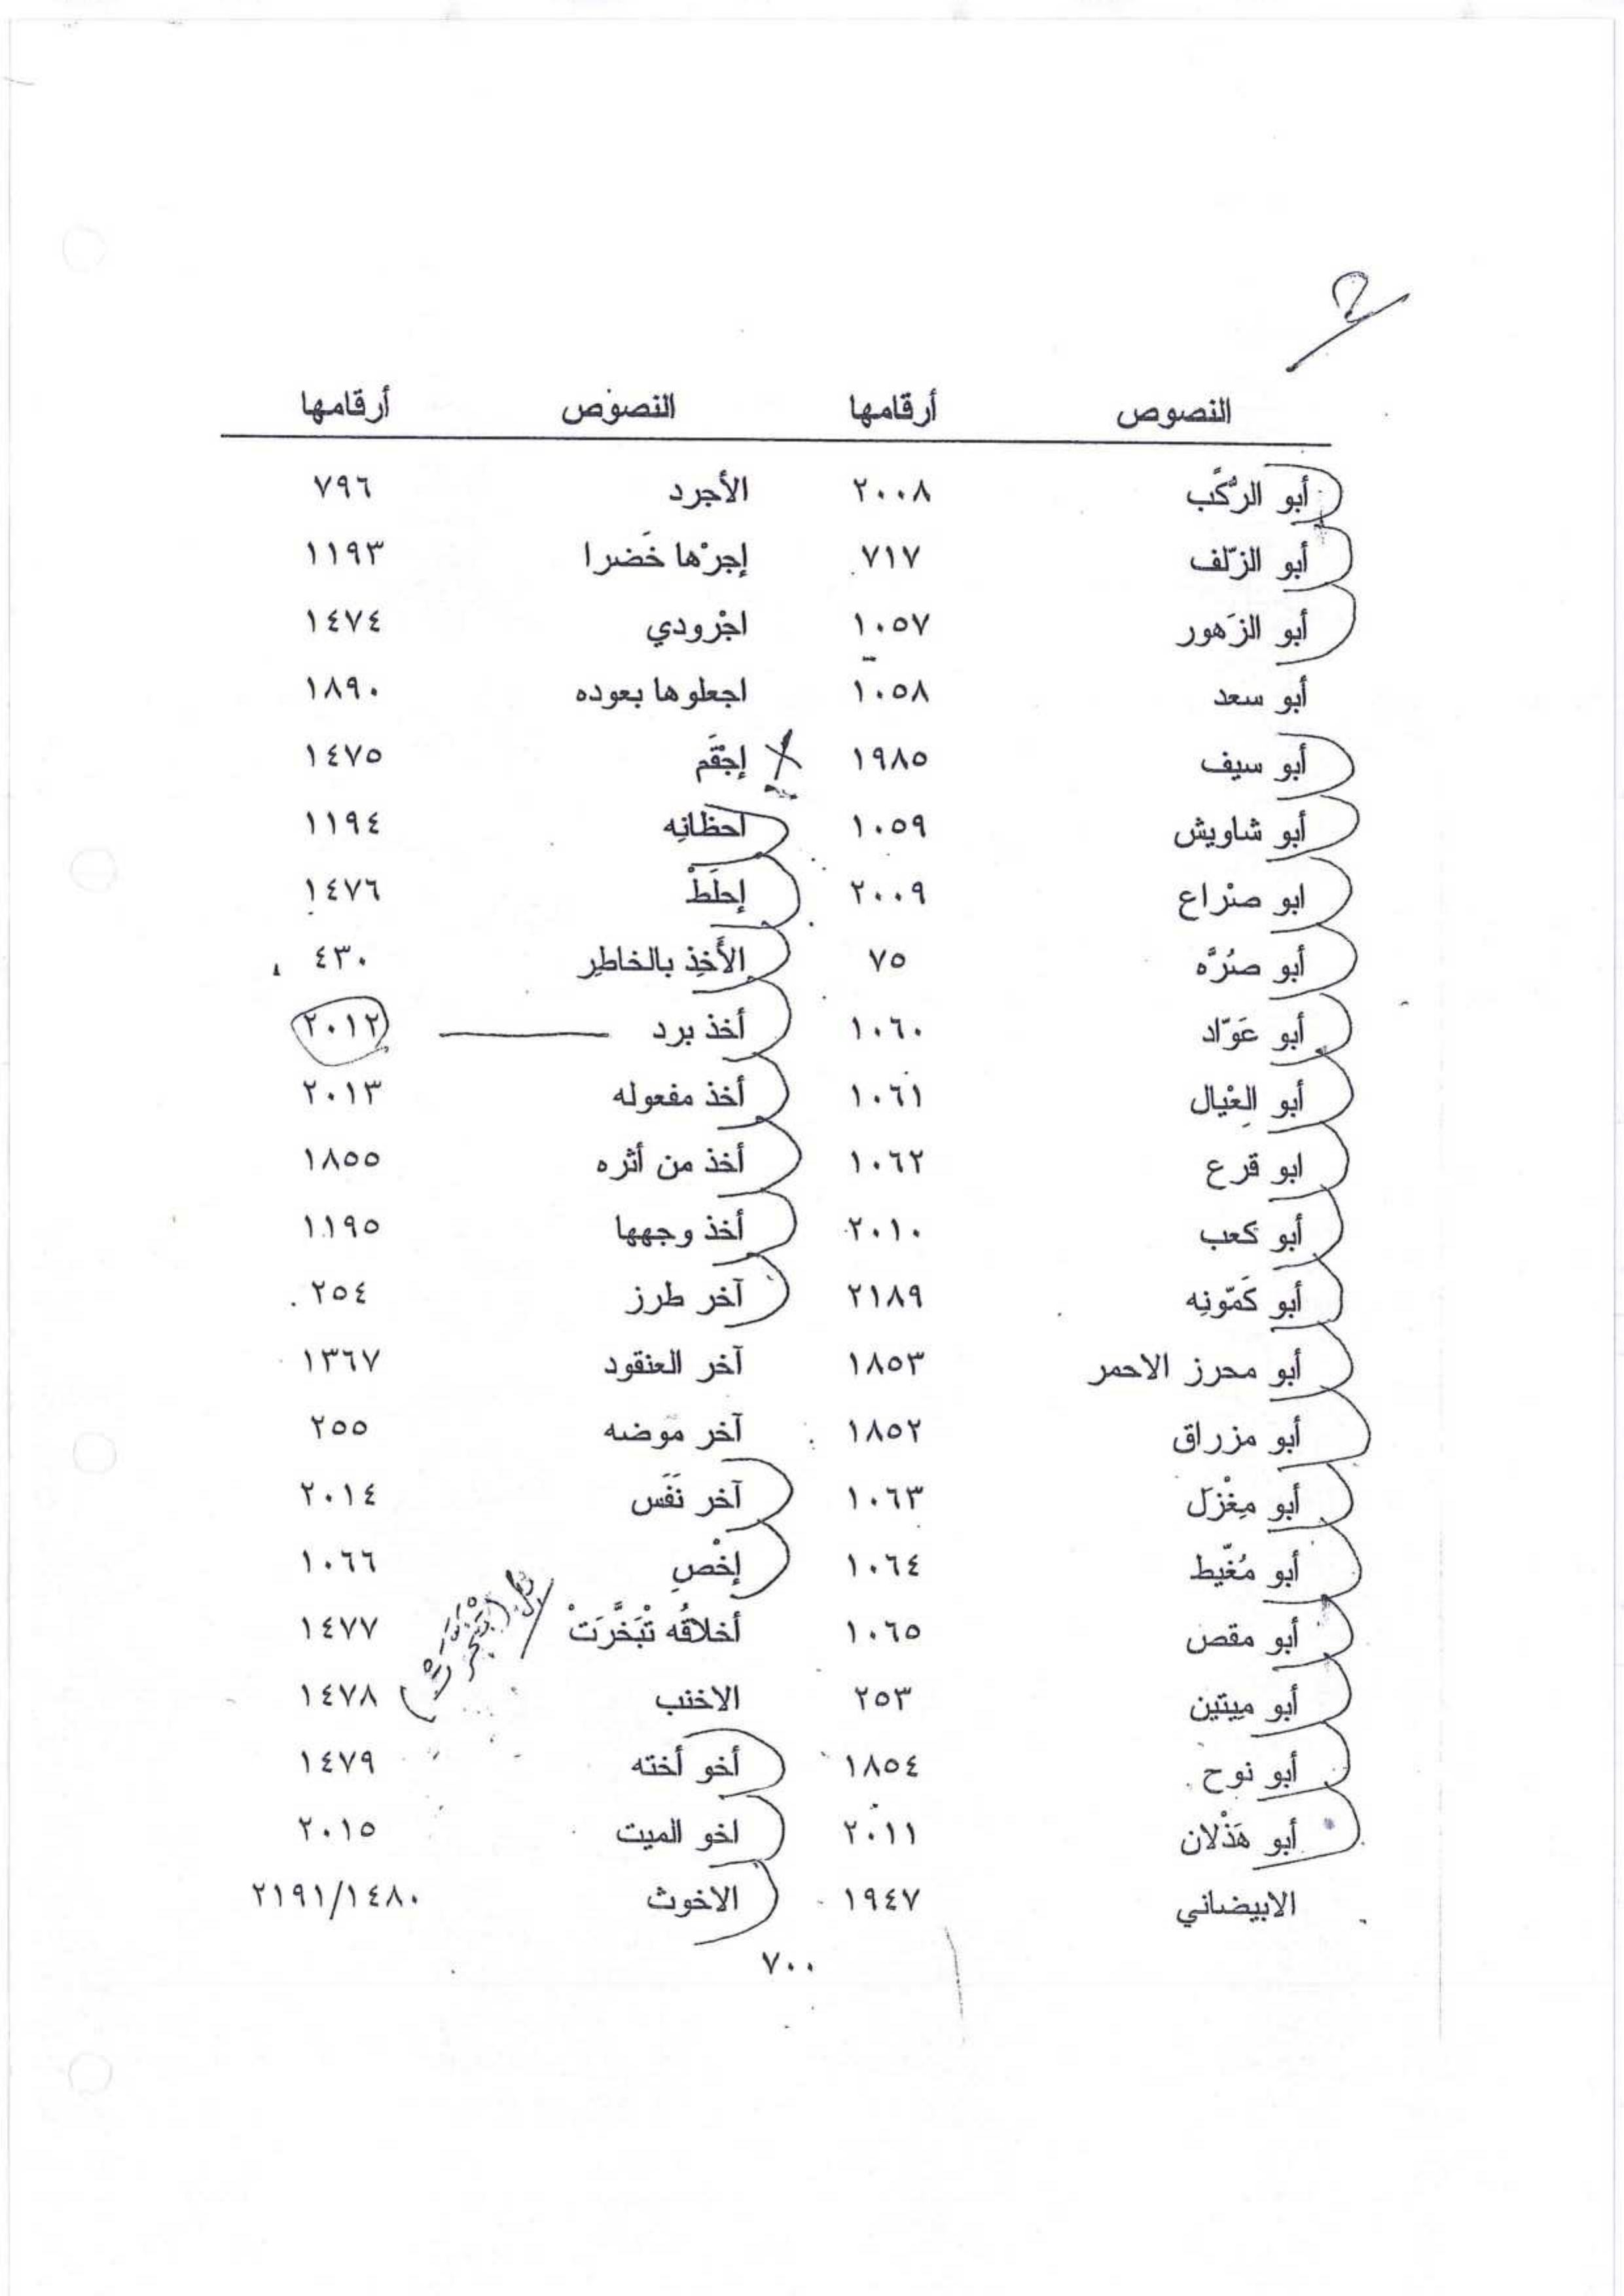 2
النصوص أرقامها النصوص أرقامها
أبو الرُكَّب ٢٠٠٨ الأجرد ٧٩٦
أبو الزلّف ٧١٧ إجرْها خَضرا ١١٩٣
أبو الزَهور ١٠٥٧ اجْرودي ١٤٧٤
أبو سعد ١٠٥٨ اجعلوها بعوده ١٨٩٠
أبو سيف ١٩٨٥ إجْقَم ١٤٧٥
أبو شاويش ١٠٥٩ احظانِه ١١٩٤
ابو صنْراع ٢٠٠٩ إحلَطْ ١٤٧٦
أبو صُرَّه ٧٥ الأَخِذ بالخاطِر ٤٣٠
أبو عَوّاد ١٠٦٠ أخذ برد ٢٠١٢
أبو العْيال ١٠٦١ أخذ مفعوله ٢٠١٣
ابو قرع ١٠٦٢ أخذ من أثره ١٨٥٥
أبو كعب ٢٠١٠ أخذ وجهها ١١٩٥
أبو كَمّونِه ٢١٨٩ آخر طرز ٢٥٤
أبو محرز الاحمر ١٨٥٣ آخر العنقود ١٣٦٧
أبو مزراق ١٨٥٢ آخر موضه ٢٥٥
أبو مِغْزَل ١٠٦٣ آخر نَفَس ٢٠١٤
أبو مُغّيط ١٠٦٤ إخْصِ ١٠٦٦
أبو مقص ١٠٦٥ أخلاقُه تْبَخَّرَتْ ١٤٧٧
أبو ميتين ٢٥٣ الاخنب ١٤٧٨
أبو نوح ١٨٥٤ أخو أخته ١٤٧٩
أبو هَذْلان ٢٠١١ اخو الميت ٢٠١٥
الابيضاني ١٩٤٧ الاخوث ٢١٩١/١٤٨٠
٧٠٠